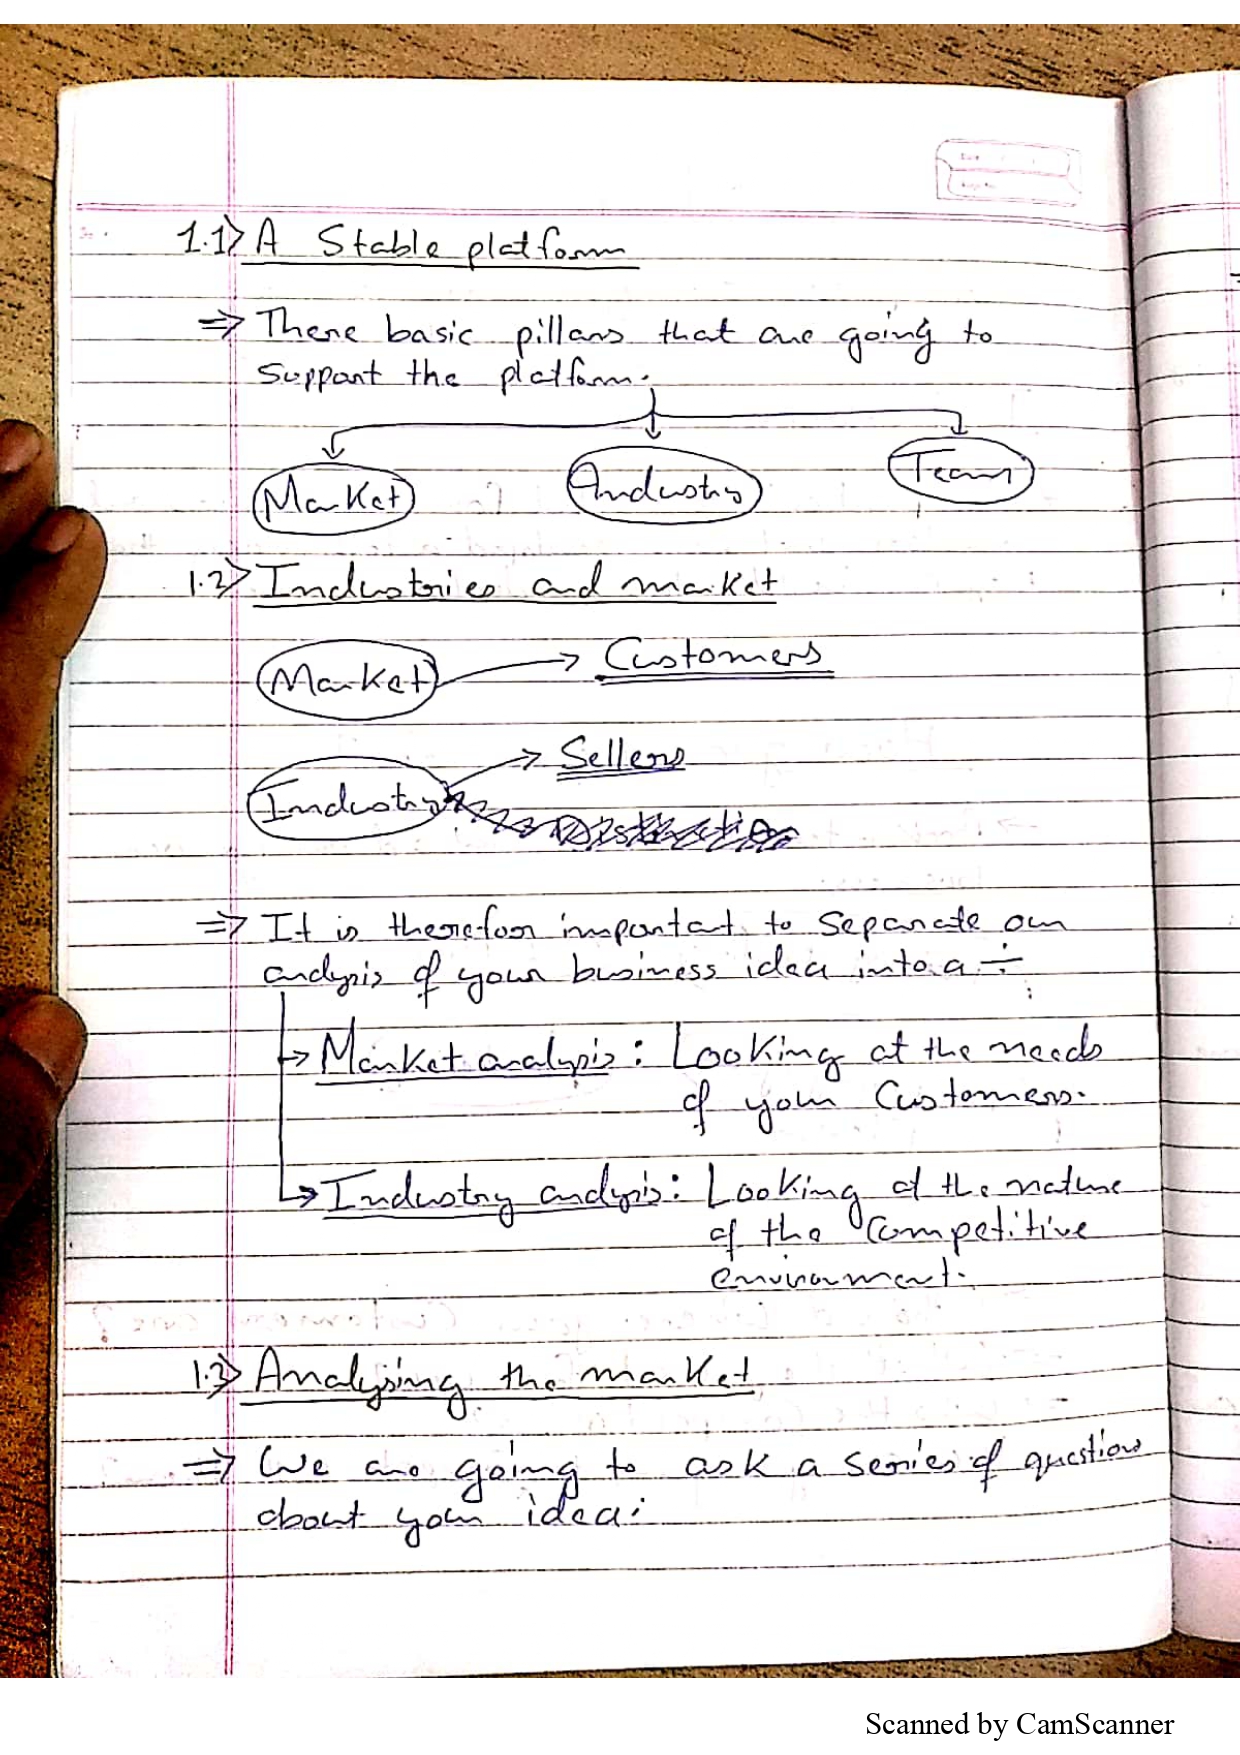 1.1> A Stable platform
=> There basic pillars that are going to
support the platform.
Market Industry Team
1.2> Industries and market
Market → Customers
Industry → Sellers
=> It is therefor important to separate our
analysis of your business idea into a ÷
→ Market analysis: Looking at the needs
of your Customers.
→ Industry analysis: Looking at the nature
of the Competitive
environment.
1.3> Analysing the market
=> We are going to ask a series of question
about your idea:
Scanned by CamScanner